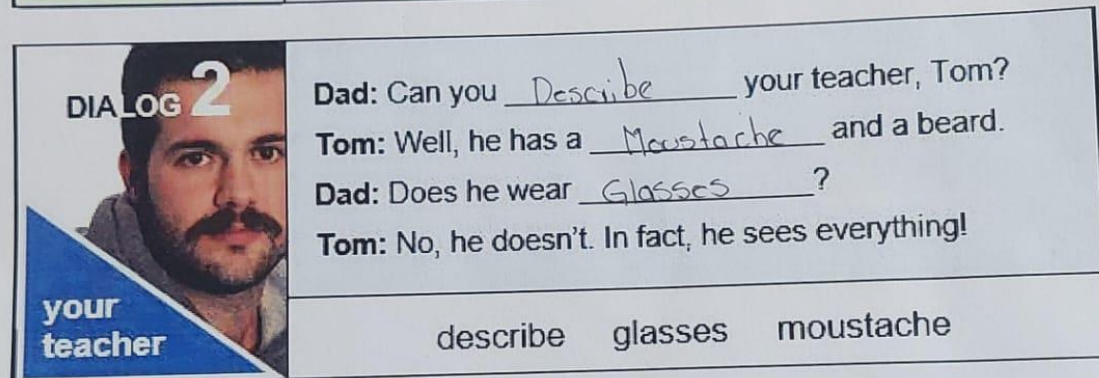 DIALOG 2
Dad: Can you Describe your teacher, Tom?
Tom: Well, he has a Moustache and a beard.
Dad: Does he wear Glasses?
Tom: No, he doesn't. In fact, he sees everything!
your
teacher
describe glasses moustache